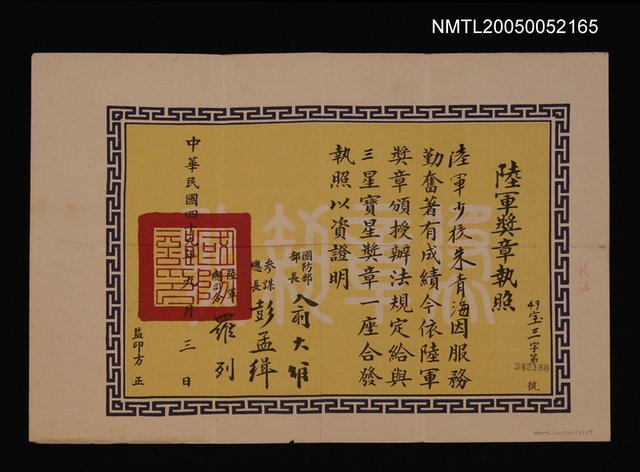 NMTL20050052165
陸軍獎章執照
49宝三字第342180號
陸軍少校朱青海因服務
勤奮著有成績今依陸軍
獎章頒授辦法規定給與
三星寶星獎章一座合發
執照以資證明
國防部部長俞大維
參謀總長彭孟緝
陸軍總司令羅列
中華民國四十九年九月三日
監印方正
NMTL20050052165